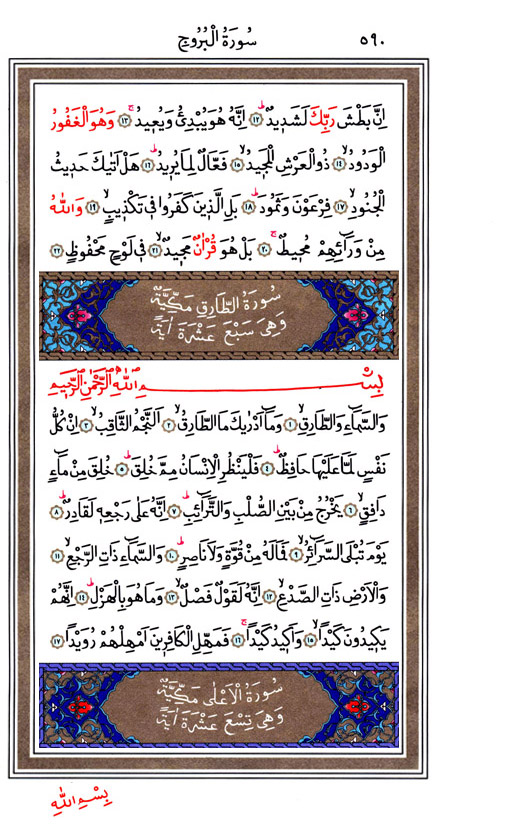 ٥٩٠ سُورَةُ الْبُرُوجِ
اِنَّ بَطْشَ رَبِّكَ لَشَدِيدٌۜ ﴿١٢﴾ اِنَّهُ هُوَ يُبْدِئُ وَيُعِيدُۚ ﴿١٣﴾ وَهُوَ الْغَفُورُ
الْوَدُودُۙ ﴿١٤﴾ ذُوالْعَرْشِ الْمَجِيدُۙ ﴿١٥﴾ فَعَّالٌ لِمَا يُرِيدُۜ ﴿١٦﴾ هَلْ اَتٰيكَ حَدِيثُ
الْجُنُودِۙ ﴿١٧﴾ فِرْعَوْنَ وَثَمُودَۜ ﴿١٨﴾ بَلِ الَّذِينَ كَفَرُوا فِي تَكْذِيبٍۙ ﴿١٩﴾ وَاللّٰهُ
مِنْ وَرَٓائِهِمْ مُحِيطٌۚ ﴿٢٠﴾ بَلْ هُوَ قُرْاٰنٌ مَجِيدٌۙ ﴿٢١﴾ فِي لَوْحٍ مَحْفُوظٍ ﴿٢٢﴾
سُورَةُ الطَّارِقِ مَكِّيَّةٌ
وَهِيَ سَبْعَ عَشْرَةَ اٰيَةً
بِسْمِ اللّٰهِ الرَّحْمٰنِ الرَّحِيمِ
وَالسَّمَٓاءِ وَالطَّارِقِۙ ﴿١﴾ وَمَٓا اَدْرٰيكَ مَا الطَّارِقُۙ ﴿٢﴾ اَلنَّجْمُ الثَّاقِبُۙ ﴿٣﴾ اِنْ كُلُّ
نَفْسٍ لَمَّا عَلَيْهَا حَافِظٌۜ ﴿٤﴾ فَلْيَنْظُرِ الْاِنْسَانُ مِمَّ خُلِقَۜ ﴿٥﴾ خُلِقَ مِنْ مَٓاءٍ
دَافِقٍۙ ﴿٦﴾ يَخْرُجُ مِنْ بَيْنِ الصُّلْبِ وَالتَّرَٓائِبِۜ ﴿٧﴾ اِنَّهُ عَلٰى رَجْعِهِ لَقَادِرٌۜ ﴿٨﴾
يَوْمَ تُبْلَى السَّرَٓائِرُۙ ﴿٩﴾ فَمَا لَهُ مِنْ قُوَّةٍ وَلَا نَاصِرٍۜ ﴿١٠﴾ وَالسَّمَٓاءِ ذَاتِ الرَّجْعِۙ ﴿١١﴾
وَالْاَرْضِ ذَاتِ الصَّدْعِۙ ﴿١٢﴾ اِنَّهُ لَقَوْلٌ فَصْلٌۙ ﴿١٣﴾ وَمَا هُوَ بِالْهَزْلِۜ ﴿١٤﴾ اِنَّهُمْ
يَكِيدُونَ كَيْدًاۙ ﴿١٥﴾ وَاَكِيدُ كَيْدًاۚ ﴿١٦﴾ فَمَهِّلِ الْكَافِرِينَ اَمْهِلْهُمْ رُوَيْدًا ﴿١٧﴾
سُورَةُ الْاَعْلٰى مَكِّيَّةٌ
وَهِيَ تِسْعَ عَشْرَةَ اٰيَةً
بِسْمِ اللّٰهِ